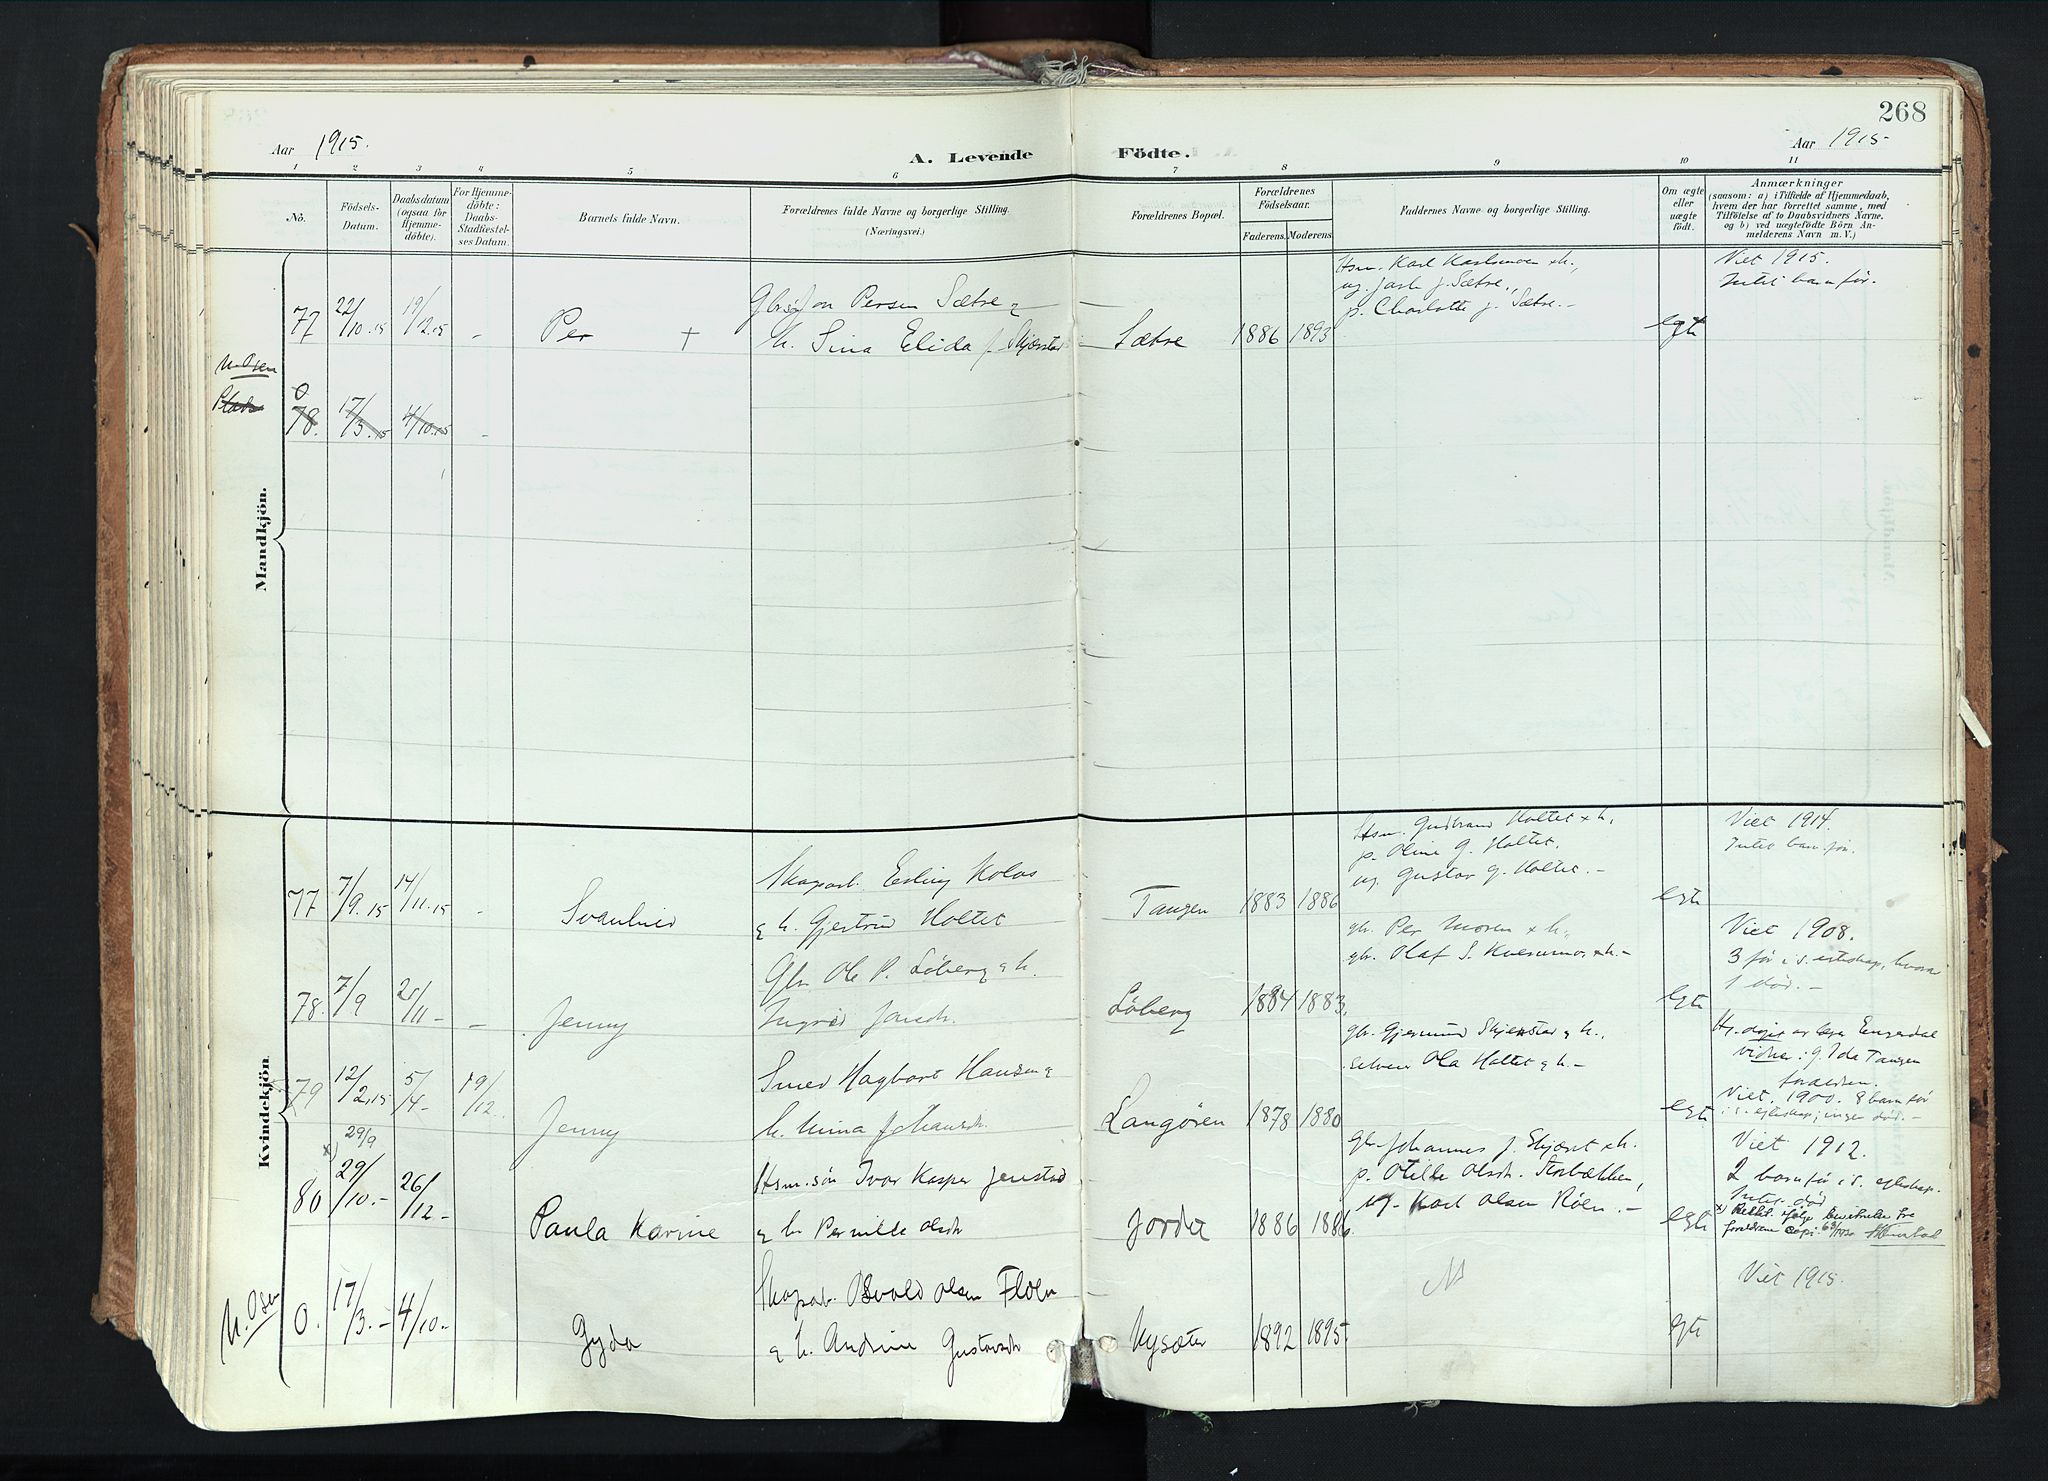 268
Aar 1915.
A. Levende Födte.
Aar 1915
1 2 3 4 5 6 7 8 9 10 11
No.
Födsels-Datum.
Daabsdatum (ogsaa for Hjemme-döbte).
For Hjemme-döbte: Daabs-Stadfæstel-ses Datum.
Barnets fulde Navn.
Forældrenes fulde Navne og borgerlige Stilling.
(Næringsvei.)
Forældrenes Bopæl.
Forældrenes Födselsaar.
Faderens. Moderens
Faddernes Navne og borgerlige Stilling.
Om ægte eller uægte födt.
Anmærkninger
(saasom: a) i Tilfælde af Hjemmedaab,
hvem der har forrettet samme, med
Tilföielse af to Daabsvidners Navne.
og b) ved uægtefödte Börn An-
melderens Navn m. V.)
Mandkjön.
77 22/10.15 19/12.15 - Per +
Jon Persen Sætre &
h. Sina Elida f. Skjærstad
Sætre 1886 1893
Hsm. Karl Karlsmoen & h.,
ug. Jarle J. Sætre,
p. Charlotte J. Sætre. -
egte
Viet 1915.
Intet barn før.
N. Osen
0
78. 17/3.15 4/10.15 -
Kvindekjön
77 7/9.15 14/11.15 - Svanhild
Skogarb. Erling Kolos
& h. Gjertrud Holtet
Tangen 1883 1886
Hsm. Gudbrand Holtet & h.,
p. Oline G. Holtet,
ug. Gustav G. Holtet. -
egte
Viet 1914.
Intet barn før.
78. 7/9 21/11 - - Jenny
Gbr. Ole P. Løberg & h.
Ingrid Jansdr.
Løberg 1884 1883
gbr. Per Moren & h.,
gbr. Olaf S. & h. -
egte
Viet 1908.
3 før i s. egteskap, hvorav
1 død. -
79 12/2.15 5/4 - 19/12. Jenny
Smed Hagbart Hansen &
h. Mina Johansdr.
Langøren 1878 1880
gbr. Gjermund Skjærstad & h.,
selveier Ola Holtet & h. -
egte
Hj. døpt av Engerdal
vidner: g. Ida Tangen
foreldren.
Viet 1900. 8 barn før
i s. egteskap; ingen død. -
80 x) 29/9 29/10. - 26/12 - Paula Karine
Hsm.søn Ivar Kasper Jenstad
& h. Pernille Olsdr.
Jordet 1886 1886
gbr. Johannes J. Skjæret & h.
p. Otilie Olsdr. Storbækken,
ug. Karl Olsen Röen. -
egte
Viet 1912.
2 barn før i s. egteskap.
Intet død
x) Rettet ifølge bevitnelse fra
foreldrene
N. Osen
0. 17/3. - 4/10. - Gyda
Skogarb. Osvald Olsen Floen
& h. Andrine Gustavsdr.
Nysæter 1892 1895
N
egte
Viet 1915.